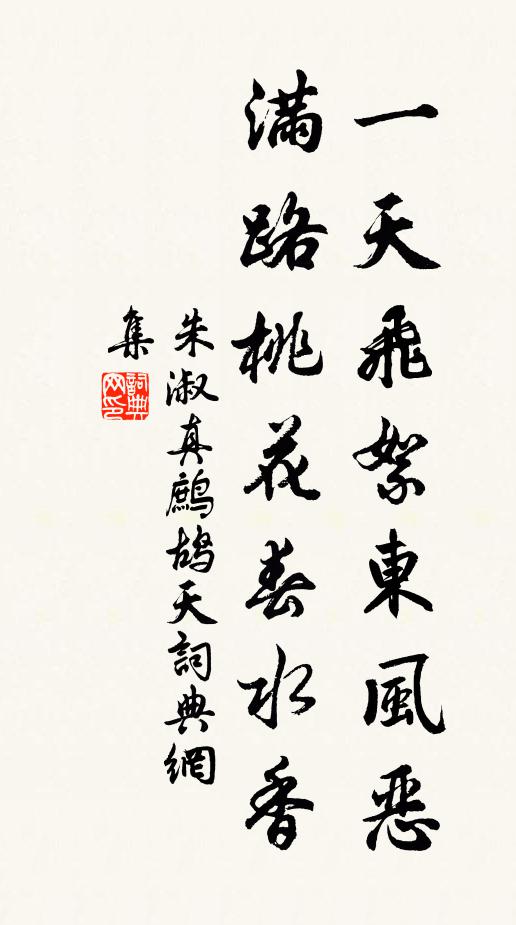 一天飛絮東風惡
滿路桃花春水香
朱淑真鷓鴣天詞典網
集
詞典網印